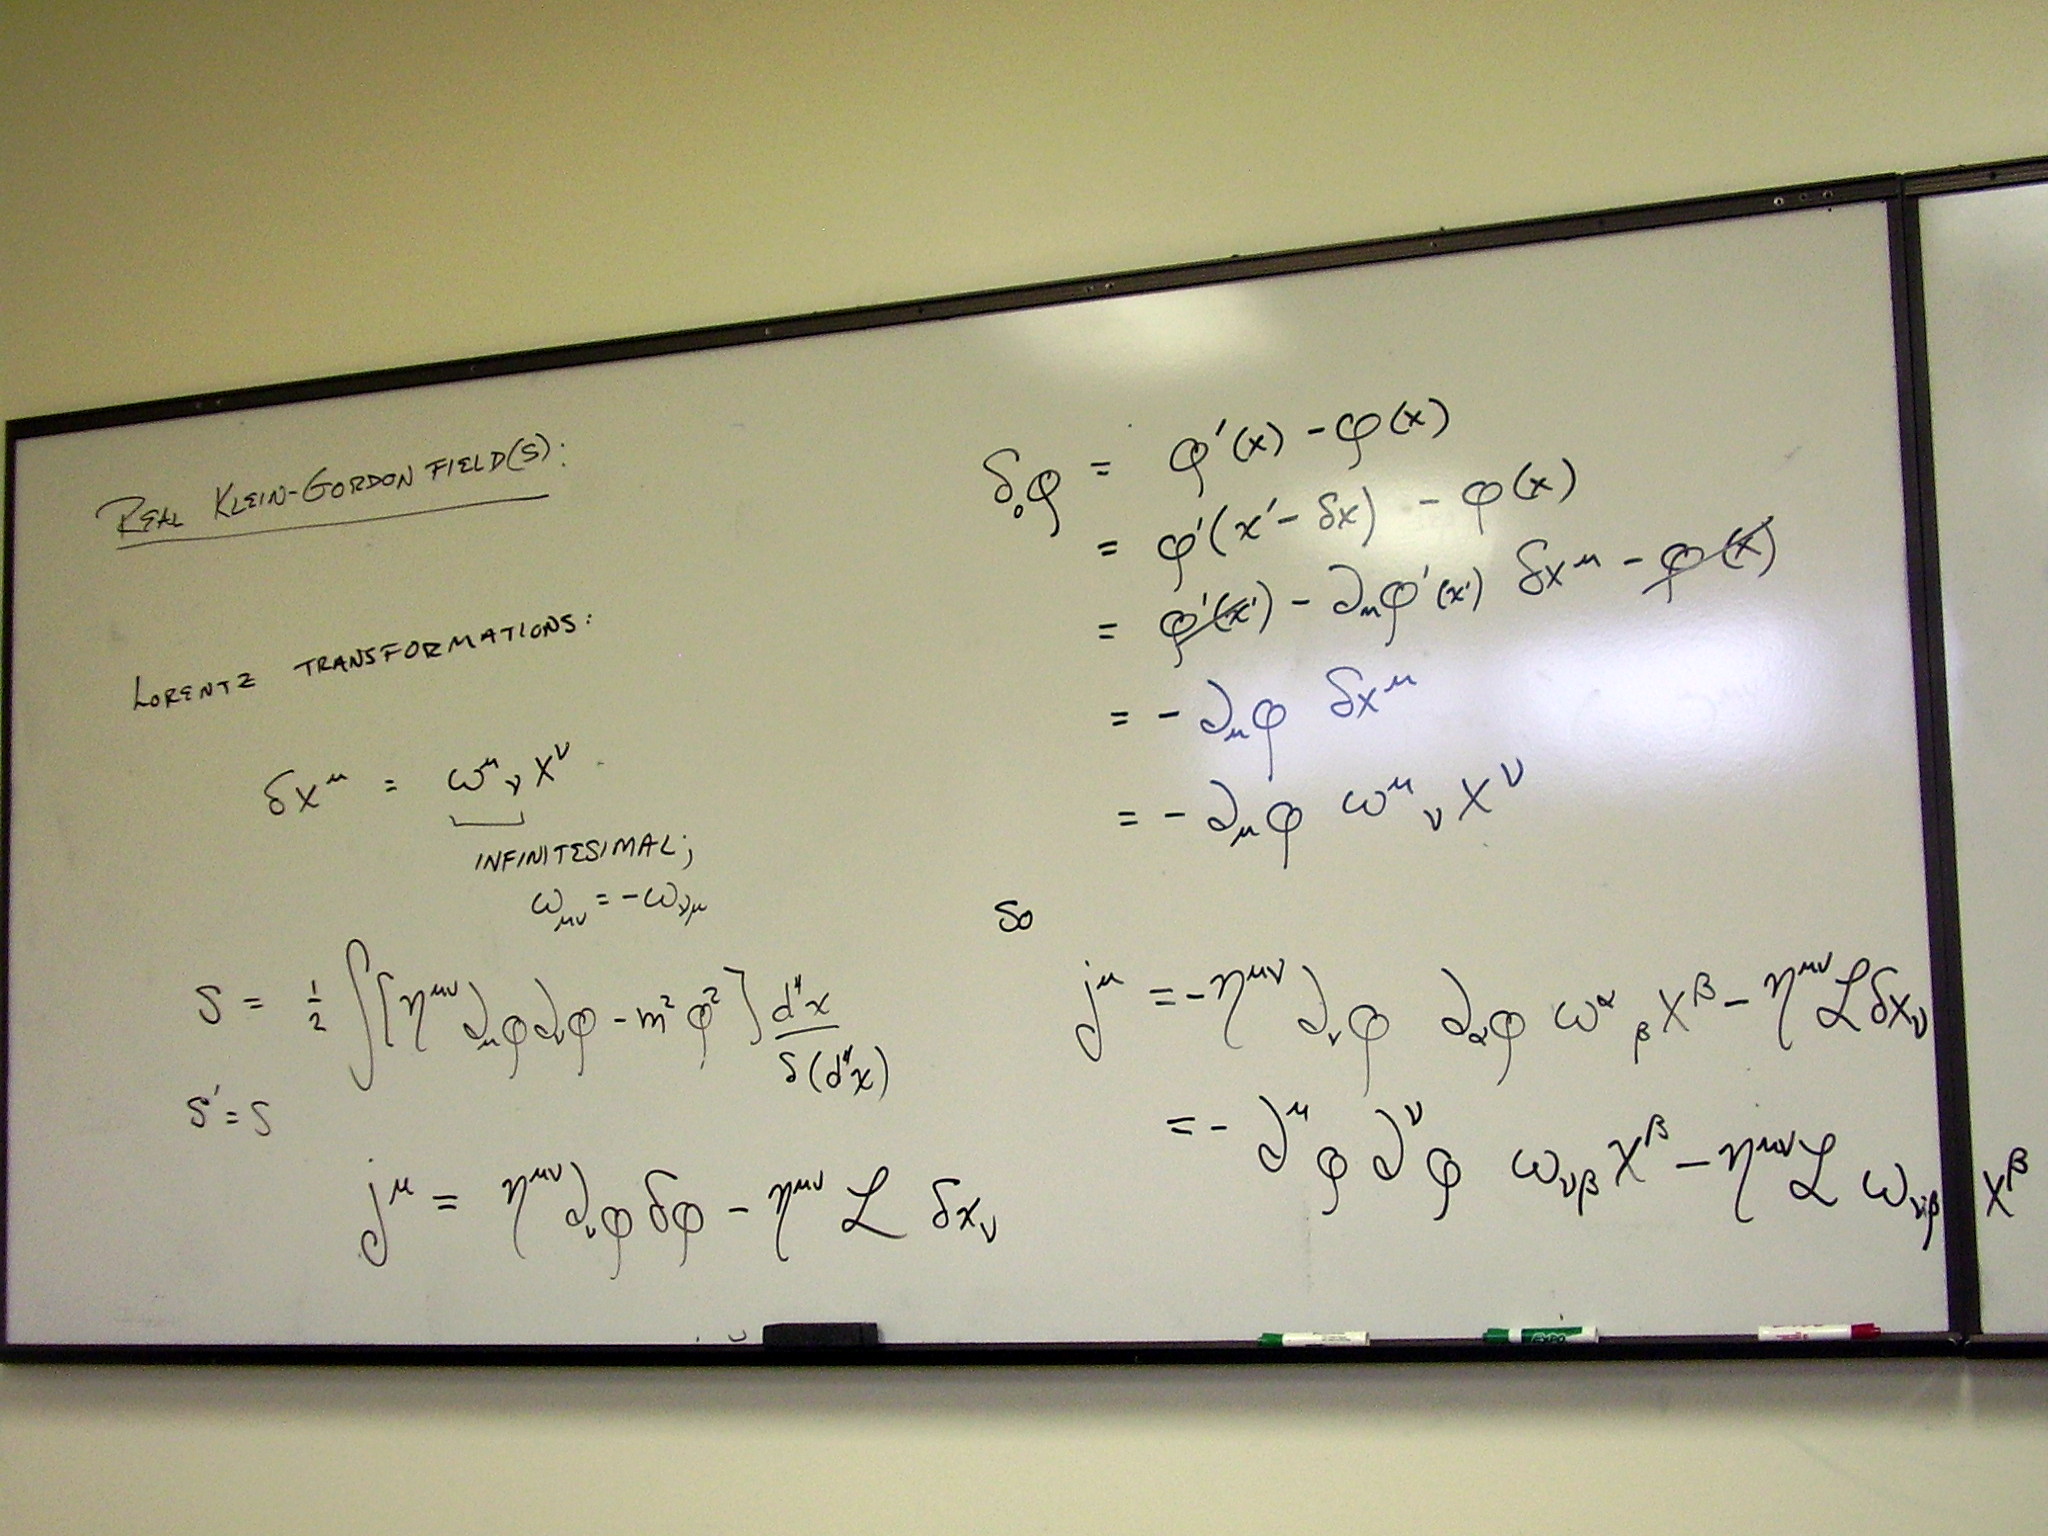 REAL KLEIN-GORDON FIELD(S):
LORENTZ TRANSFORMATIONS:
δx^μ = ω^μ_ν x^ν
INFINITESIMAL;
ω_μν = -ω_νμ
S = 1/2 ∫[η^μν ∂_μφ ∂_νφ - m²φ²] d⁴x
δ(d⁴x)
S' = S
j^μ = η^μν ∂_νφ δφ - η^μν ℒ δx_ν
δ₀φ = φ'(x) - φ(x)
= φ'(x' - δx) - φ(x)
= φ'(x') - ∂_μφ'(x') δx^μ - φ(x)
= - ∂_μφ δx^μ
= - ∂_μφ ω^μ_ν x^ν
SO
j^μ = -η^μν ∂_νφ ∂_αφ ω^α_β x^β - η^μν ℒ δx_ν
= - ∂^μφ ∂^νφ ω_νβ x^β - η^μν ℒ ω_νβ x^β